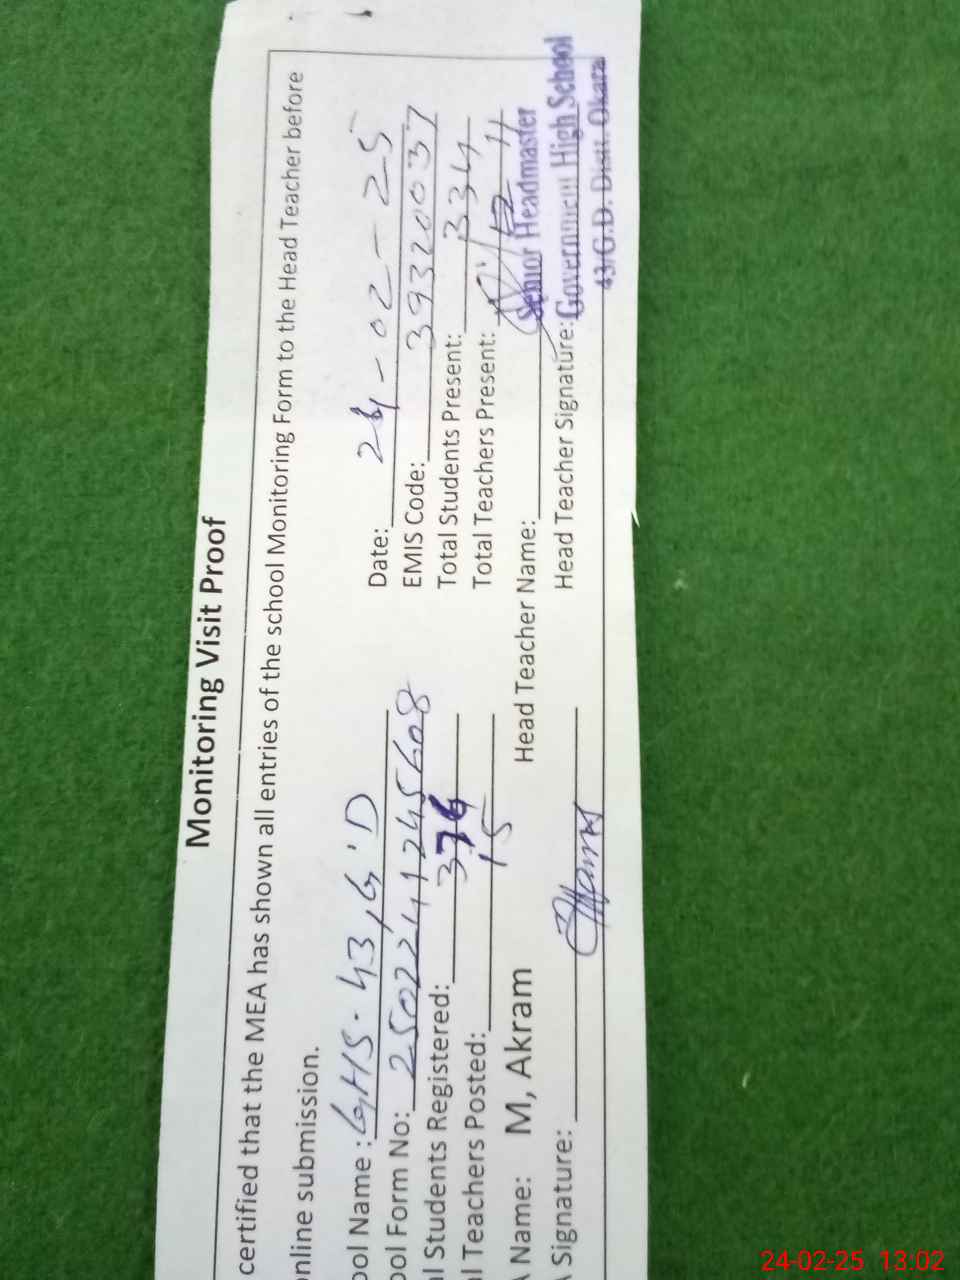 Monitoring Visit Proof
certified that the MEA has shown all entries of the school Monitoring Form to the Head Teacher before
online submission.
ool Name : GHS. 43, G'D
Date: 24-02-25
ool Form No: 2502241245608
EMIS Code: 39320037
l Students Registered: 376
Total Students Present: 334
l Teachers Posted: 15
Total Teachers Present: 11
A Name: M, Akram
Head Teacher Name:
Senior Headmaster
A Signature:
Head Teacher Signature: Government High School
43/G.D. Distt. Okara
24-02-25 13:02